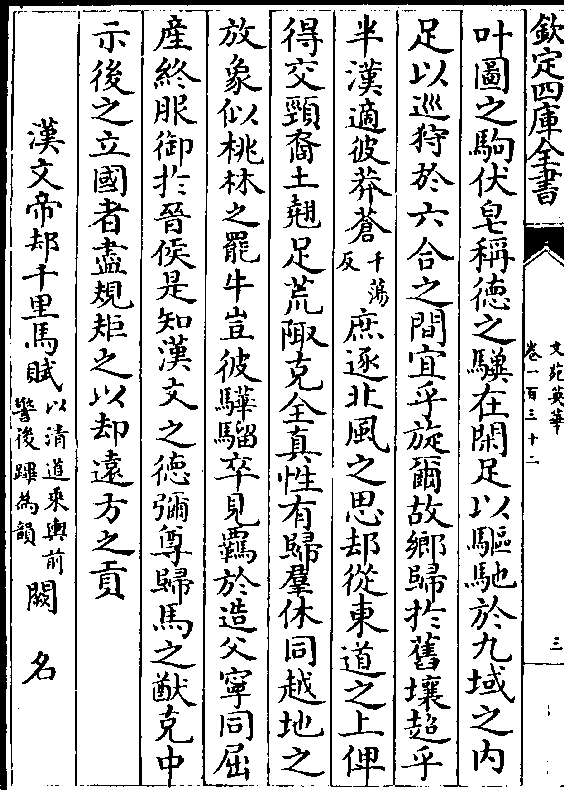 欽定四庫全書
文苑英華
卷一百三十二
三
叶圖之駒伏皂稱德之驥在閑足以驅馳於九域之内
足以巡狩於六合之間宜乎旋爾故鄉歸於舊壤超乎
半漢適彼莽蒼千蕩反庶逐北風之思却從東道之上俾
得交頸裔土翹足荒陬克全真性有歸羣休同越地之
放象似桃林之罷牛豈彼驊騮卒見羈於造父寧同屈
産終服御於晉侯是知漢文之德彌尊歸馬之猷克中
示後之立國者盡規矩之以却遠方之貢
漢文帝却千里馬賦以清道乘輿前警後蹕為韻 闕名